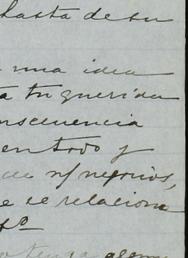 hasta de su
una idea
a tu querida
nsecuencia
en todo y
de n/ negocios,
e se relacion